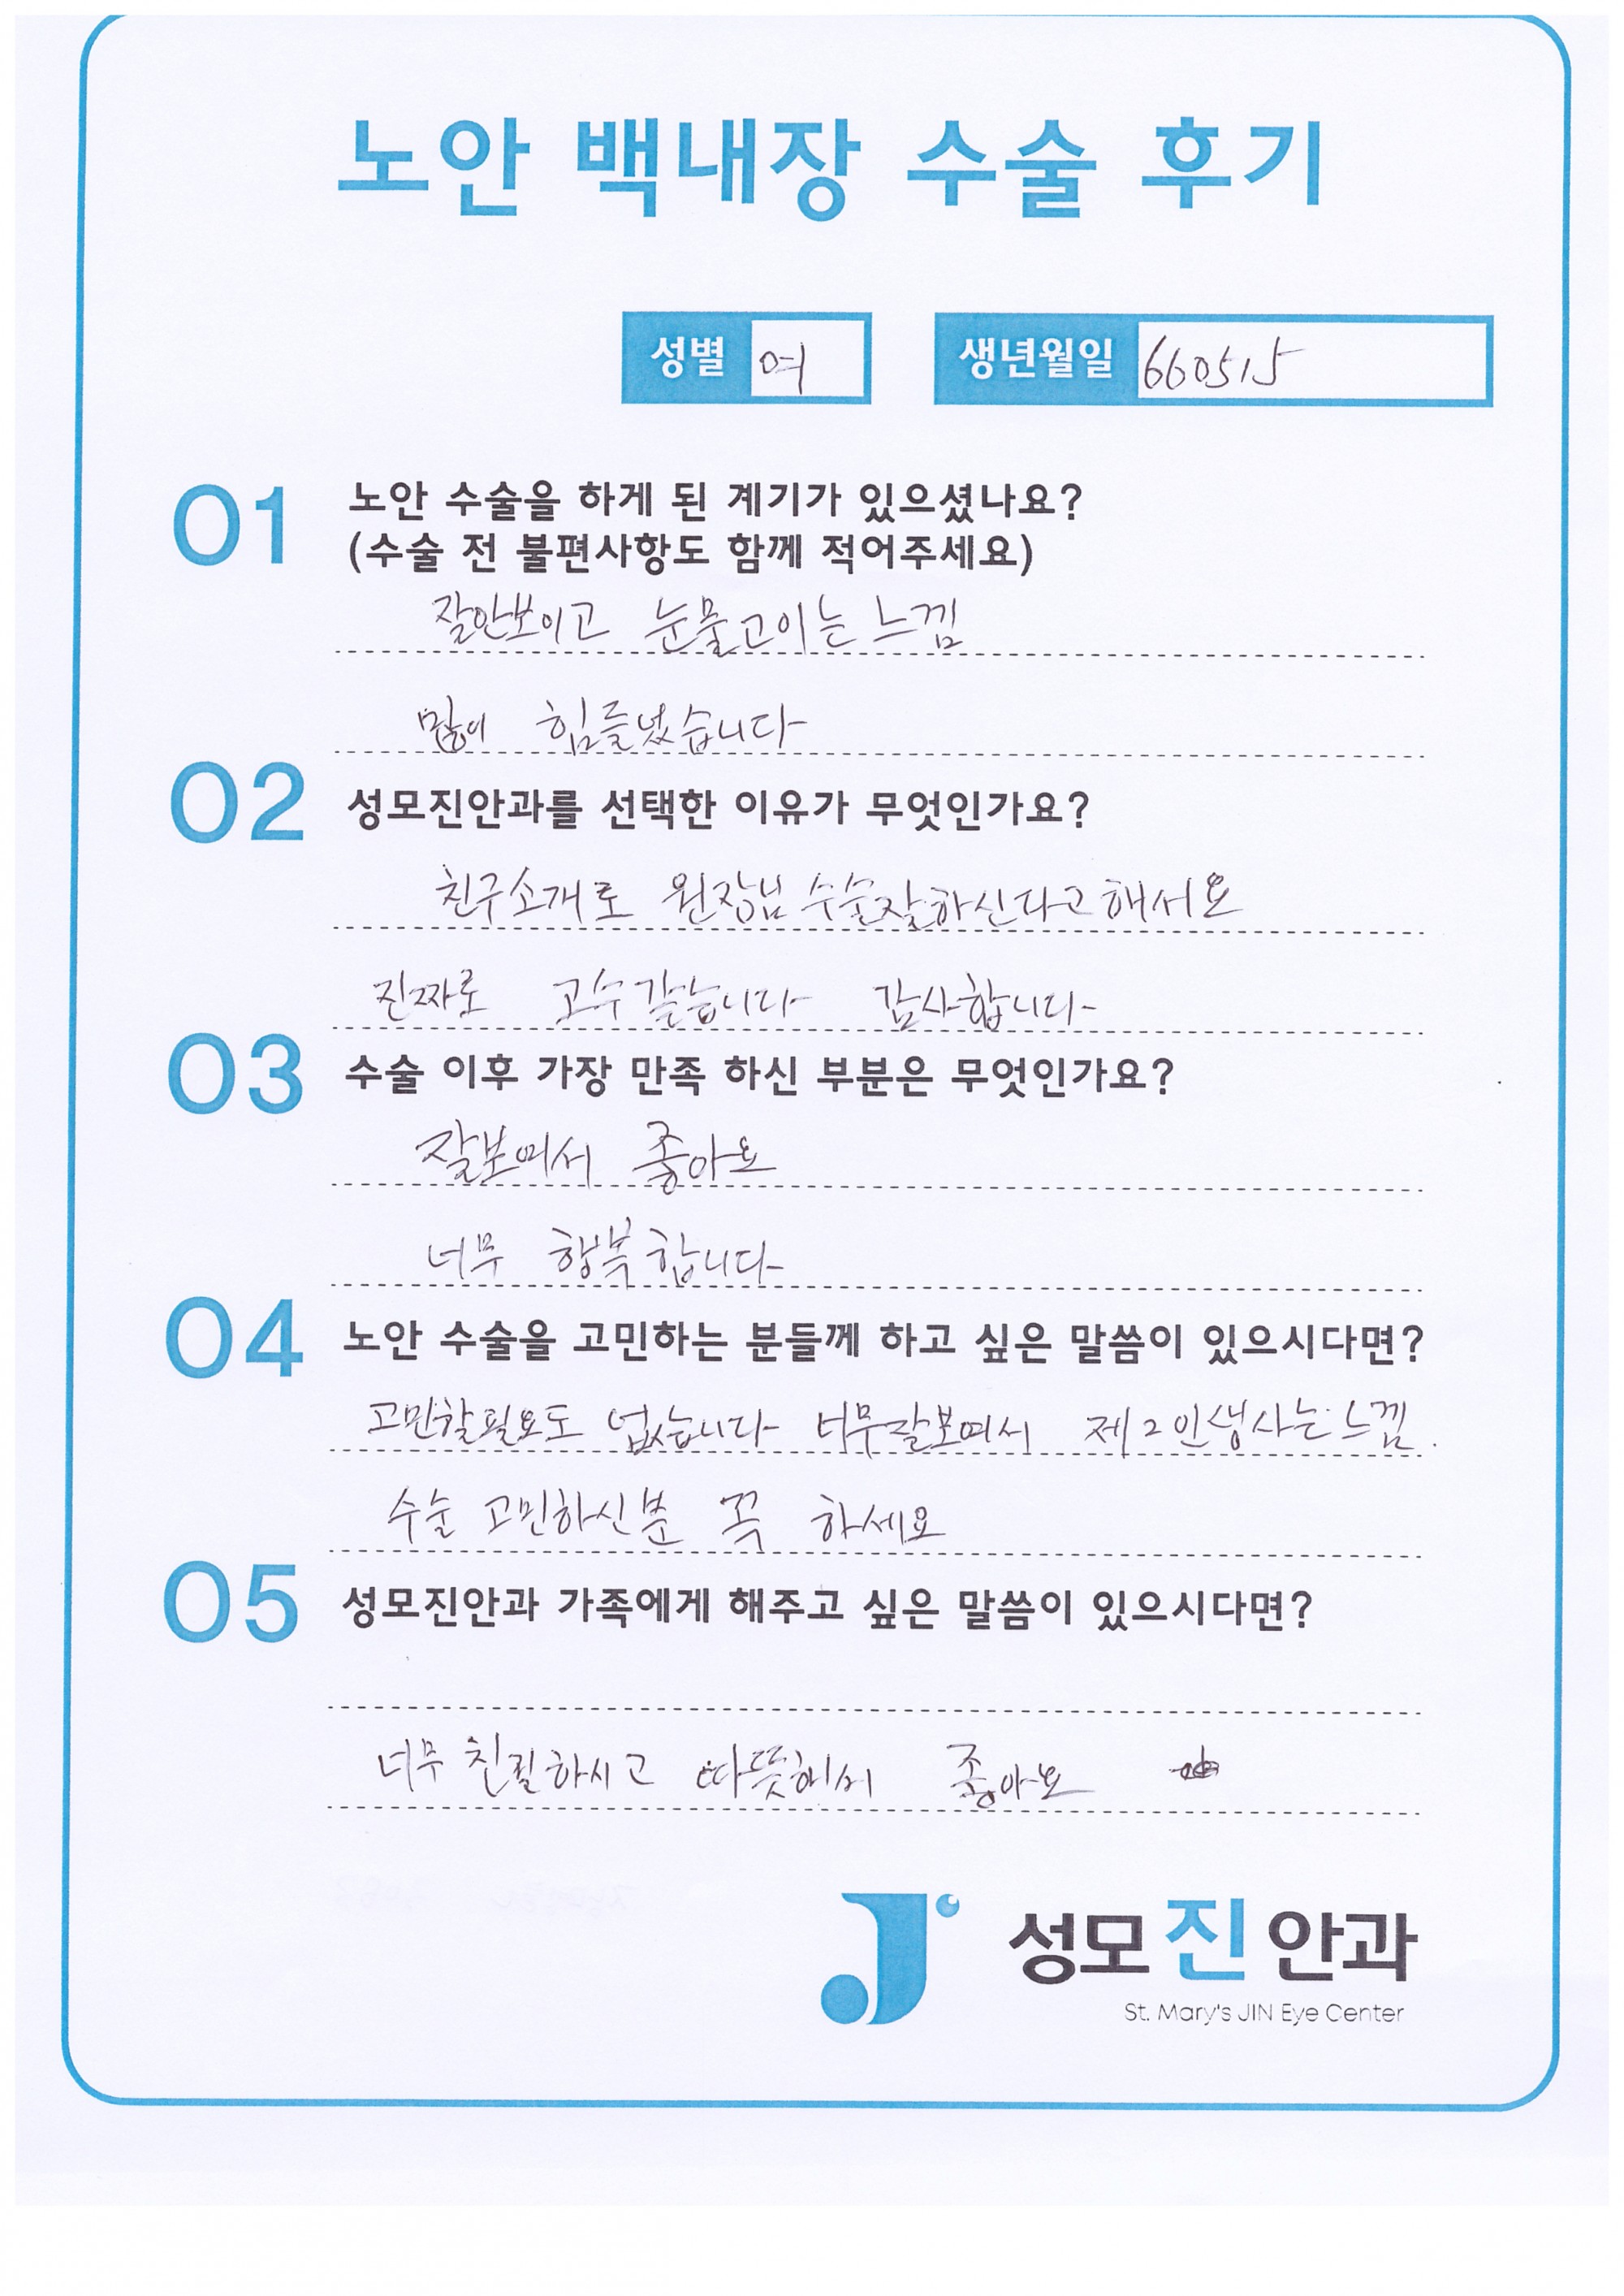 노안 백내장 수술 후기
성별 여 생년월일 660515
01 노안 수술을 하게 된 계기가 있으셨나요?
(수술 전 불편사항도 함께 적어주세요)
잘안보이고 눈물고이는 느낌
많이 힘들었습니다
02 성모진안과를 선택한 이유가 무엇인가요?
친구소개로 원장님 수술잘하신다고 해서요
진짜로 고수 같습니다 감사합니다
03 수술 이후 가장 만족 하신 부분은 무엇인가요?
잘보여서 좋아요
너무 행복합니다
04 노안 수술을 고민하는 분들께 하고 싶은 말씀이 있으시다면?
고민할필요도 없습니다 너무잘보여서 제2인생사는느낌.
수술 고민하신분 꼭 하세요
05 성모진안과 가족에게 해주고 싶은 말씀이 있으시다면?
너무 친절하시고 따뜻해서 좋아요
성모진안과
St. Mary's JIN Eye Center